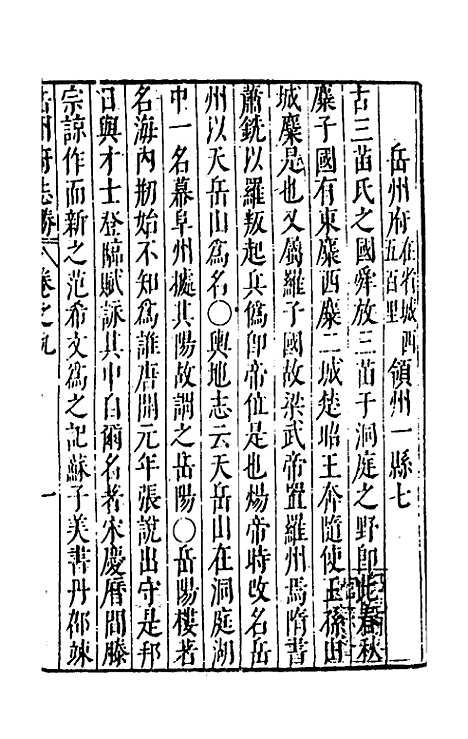 岳州府在省城西五百里領州一縣七
古三苗氏之國舜放三苗于洞庭之野即此春秋
麋子國有東麋西麋二城楚昭王奔隨使王孫由
城麋是也又僑羅子國故梁武帝置羅州焉隋書
蕭銑以羅叛起兵僞即帝位是也楊帝時改名岳
州以天岳山爲名○輿地志云天岳山在洞庭湖
中一名幕阜州據其陽故謂之岳陽○岳陽樓著
名海内剏始不知爲誰唐開元年張說出守是邦
日與才士登臨賦詠其中自爾名著宋慶曆間滕
宗諒作而新之范希文爲之記蘇子美書丹邵竦
岳州府志勝 卷之九 一